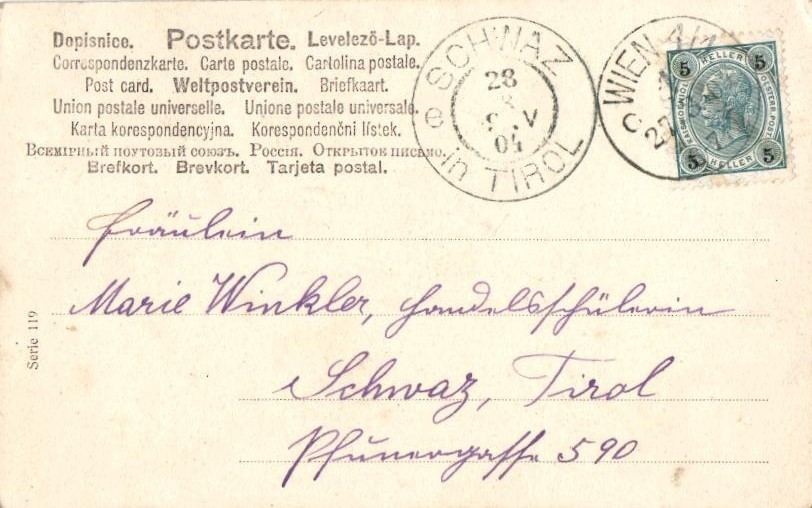 Dopisnice. Postkarte. Levelező-Lap.
Correspondenzkarte. Carte postale. Cartolina postale.
Post card. Weltpostverein. Briefkaart.
Union postale universelle. Unione postale universale.
Karta korespondencyjna. Korespondenčni lístek.
Всемірный почтовый союзъ. Россія. Открытое письмо.
Brefkort. Brevkort. Tarjeta postal.
SCHWAZ
28
V
04
in TIROL
WIEN 4/1
5 HELLER 5
OESTERR. POST
5 HELLER 5
Fräulein
Marie Winkler, Handelsschülerin
Schwaz, Tirol
Pfunergasse 590
Serie 119